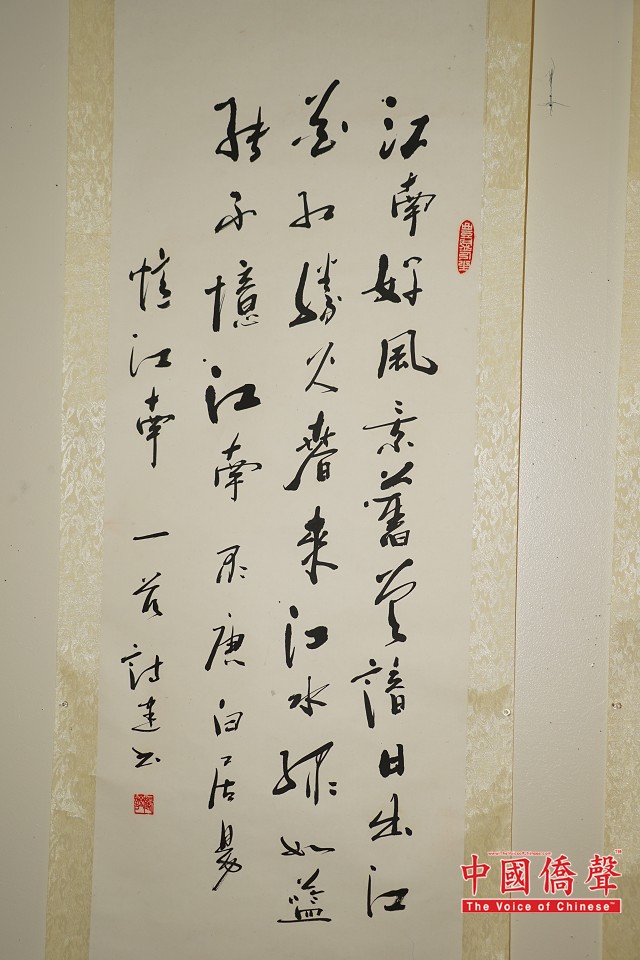 江南好風景舊曾諳日出江
花紅勝火春來江水綠如藍
能不憶江南 唐白居易
憶江南 一首 詩 书
www.TheVoiceofChinese.com
中國僑聲™
The Voice of Chinese™